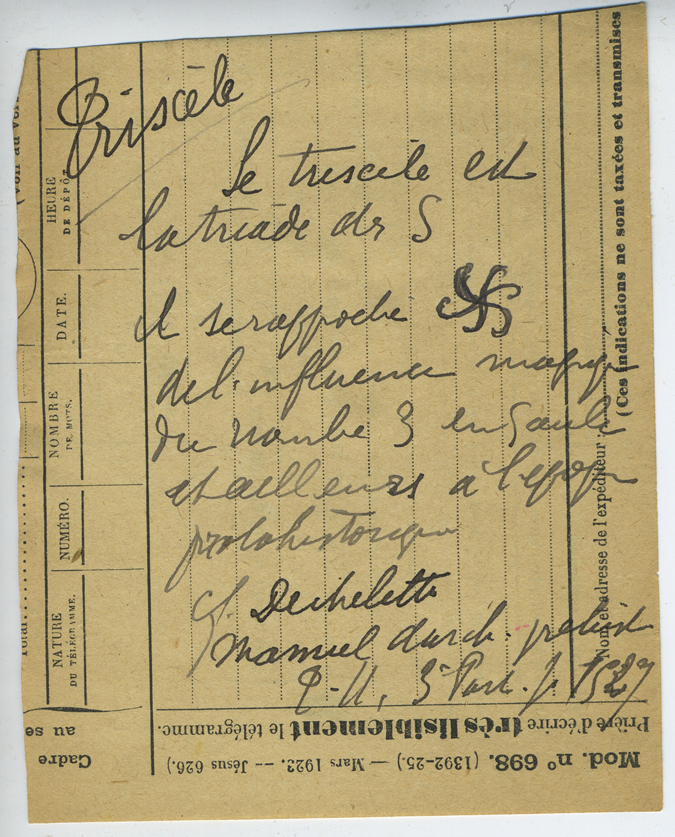 Triscèle
Le triscèle est
la triade des S
il se rapproche
de l'influence magique
du nombre 3 en Gaule
et ailleurs à l'époque
protohistorique
Cf. Dechelette
Manuel d'arch. préhist
T. II, 3e Part. p. 1527
(Voir au ver
HEURE
DE DÉPÔT.
DATE.
NOMBRE
DE MOTS.
NUMÉRO.
NATURE
DU TÉLÉGRAMME.
Total
Nom et adresse de l'expéditeur :
(Ces indications ne sont taxées et transmises
Mod. n° 698. (1392-25.) — Mars 1923. -- Jésus 626.)
Prière d'écrire très lisiblement le télégramme.
Cadre
au se